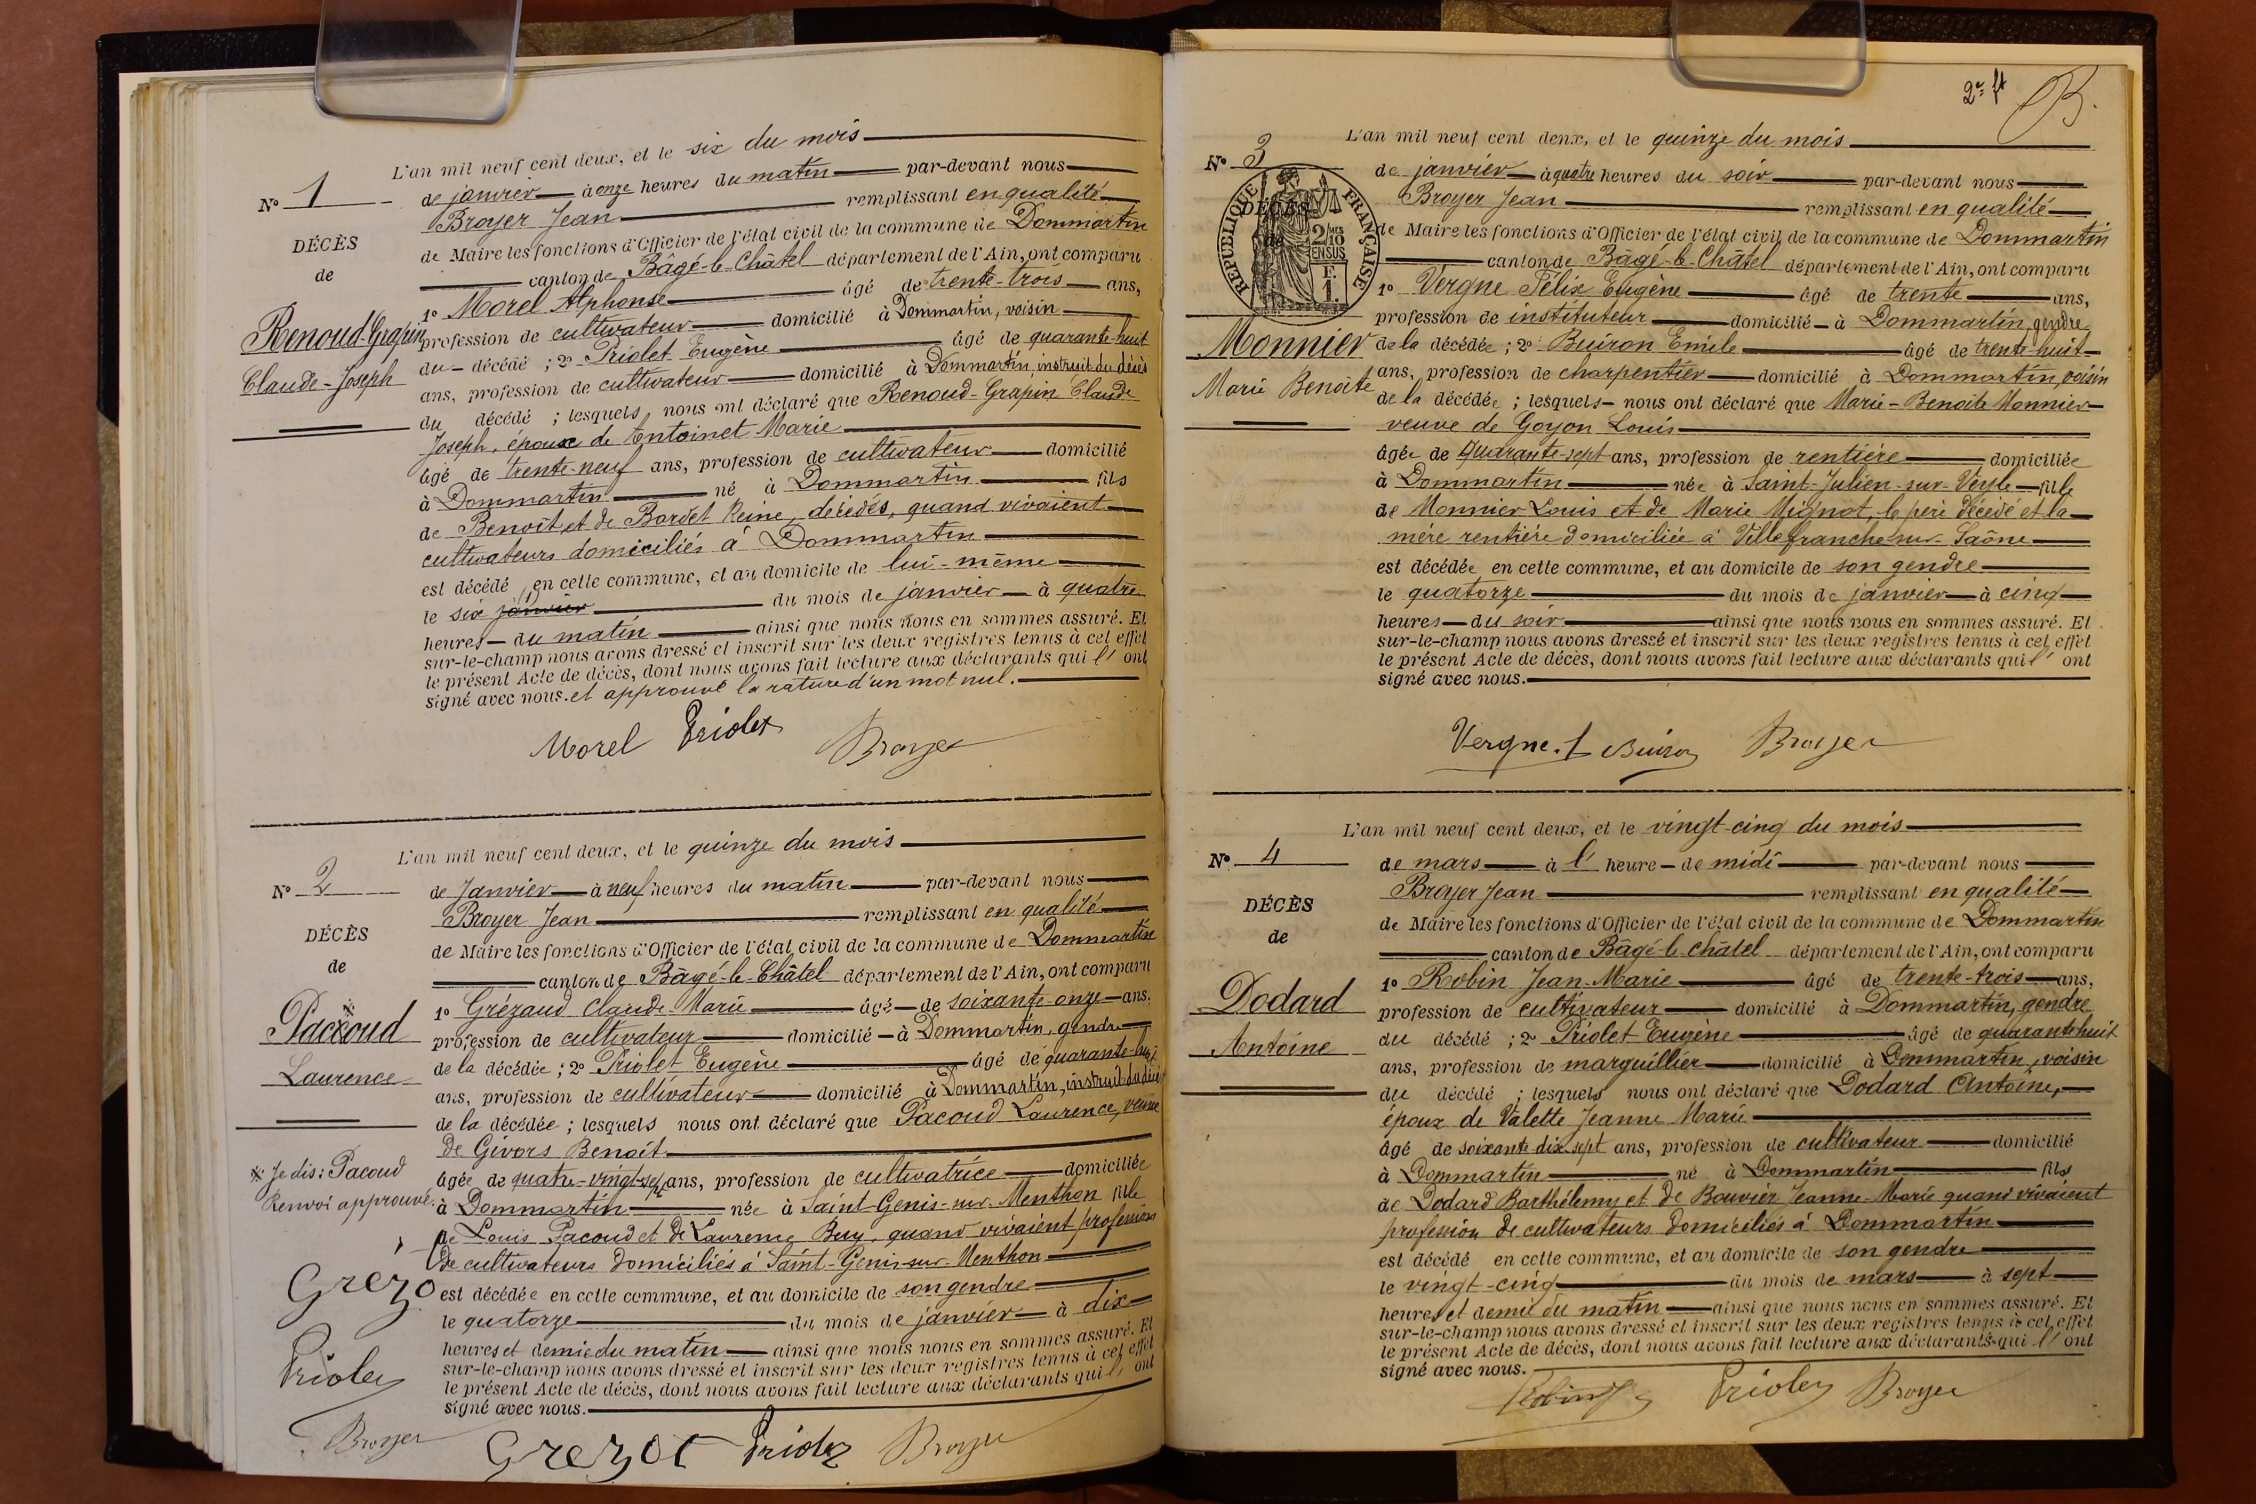 L'an mil neuf cent deux, et le six du mois
N° 1
de janvier à onze heures du matin par-devant nous
Broyer Jean remplissant en qualité
DÉCÈS
de Maire les fonctions d'Officier de l'état civil de la commune de Dommartin
de
canton de Bâgé-le-Châtel département de l'Ain, ont comparu
1° Morel Alphonse âgé de trente-trois ans,
Renoud-Grapin
profession de cultivateur domicilié à Dommartin, voisin
Claude-Joseph
du décédé ; 2° Priolet Eugène âgé de quarante-huit
ans, profession de cultivateur domicilié à Dommartin, instruit du décès
du décédé ; lesquels nous ont déclaré que Renoud-Grapin Claude
Joseph, époux de Antoinet Marie
âgé de trente-neuf ans, profession de cultivateur domicilié
à Dommartin né à Dommartin fils
de Benoît et de Bordet Reine, décédés, quand vivaient
cultivateurs domiciliés à Dommartin
est décédé en cette commune, et au domicile de lui-même
le six janvier du mois de janvier à quatre
heures du matin ainsi que nous nous en sommes assuré. Et
sur-le-champ nous avons dressé et inscrit sur les deux registres tenus à cet effet
le présent Acte de décès, dont nous avons fait lecture aux déclarants qui l' ont
signé avec nous. et approuvé la rature d'un mot nul.
Morel Priolet Broyer
L'an mil neuf cent deux, et le quinze du mois
N° 2
de Janvier à neuf heures du matin par-devant nous
Broyer Jean remplissant en qualité
DÉCÈS
de Maire les fonctions d'Officier de l'état civil de la commune de Dommartin
de
canton de Bâgé-le-Châtel département de l'Ain, ont comparu
1° Grézaud Claude Marie âgé de soixante-onze ans,
Paccoud
profession de cultivateur domicilié à Dommartin, gendre
Laurence
de la décédée ; 2° Priolet Eugène âgé de quarante-huit
ans, profession de cultivateur domicilié à Dommartin, instruit du décès
de la décédée ; lesquels nous ont déclaré que Pacoud Laurence, veuve
de Givors Benoît
Je dis : Pacoud
Renvoi approuvé.
âgée de quatre-vingt-sept ans, profession de cultivatrice domiciliée
à Dommartin née à Saint-Genis-sur-Menthon fille
de Louis Pacoud et de Laurence Buy, quand vivaient profession
de cultivateurs domiciliés à Saint-Genis-sur-Menthon
Grezo
est décédée en cette commune, et au domicile de son gendre
le quatorze du mois de janvier à dix
Priolet
heures et demie du matin ainsi que nous nous en sommes assuré. Et
sur-le-champ nous avons dressé et inscrit sur les deux registres tenus à cet effet
le présent Acte de décès, dont nous avons fait lecture aux déclarants qui l' ont
signé avec nous.
Broyer
Grezot Priolet Broyer
2e ft
L'an mil neuf cent deux, et le quinze du mois
N° 3
de janvier à quatre heures du soir par-devant nous
Broyer Jean remplissant en qualité
DÉCÈS
de
RÉPUBLIQUE FRANÇAISE
2/10 EN SUS
F. 1.
de Maire les fonctions d'Officier de l'état civil de la commune de Dommartin
canton de Bâgé-le-Châtel département de l'Ain, ont comparu
1° Vergne Félix Eugène âgé de trente ans,
profession de instituteur domicilié à Dommartin, gendre
Monnier
Marie Benoîte
de la décédée ; 2° Buiron Emile âgé de trente-huit
ans, profession de charpentier domicilié à Dommartin, voisin
de la décédée ; lesquels nous ont déclaré que Marie-Benoîte Monnier
veuve de Goyon Louis
âgée de quarante-sept ans, profession de rentière domiciliée
à Dommartin née à Saint-Julien-sur-Veyle fille
de Monnier Louis et de Marie Mignot, le père décédé et la
mère rentière domiciliée à Villefranche-sur-Saône
est décédée en cette commune, et au domicile de son gendre
le quatorze du mois de janvier à cinq
heures du soir ainsi que nous nous en sommes assuré. Et
sur-le-champ nous avons dressé et inscrit sur les deux registres tenus à cet effet
le présent Acte de décès, dont nous avons fait lecture aux déclarants qui l' ont
signé avec nous.
Vergne. f Buiron Broyer
L'an mil neuf cent deux, et le vingt-cinq du mois
N° 4
de mars à l' heure de midi par-devant nous
Broyer Jean remplissant en qualité
DÉCÈS
de Maire les fonctions d'Officier de l'état civil de la commune de Dommartin
de
canton de Bâgé-le-Châtel département de l'Ain, ont comparu
1° Robin Jean-Marie âgé de trente-trois ans,
Dodard
profession de cultivateur domicilié à Dommartin, gendre
Antoine
du décédé ; 2° Priolet Eugène âgé de quarante-huit
ans, profession de marguillier domicilié à Dommartin, voisin
du décédé ; lesquels nous ont déclaré que Dodard Antoine,
époux de Valette Jeanne Marie
âgé de soixante-dix-sept ans, profession de cultivateur domicilié
à Dommartin né à Dommartin fils
de Dodard Barthélemy et de Bouvier Jeanne-Marie quand vivaient
profession de cultivateurs domiciliés à Dommartin
est décédé en cette commune, et au domicile de son gendre
le vingt-cinq du mois de mars à sept
heures et demie du matin ainsi que nous nous en sommes assuré. Et
sur-le-champ nous avons dressé et inscrit sur les deux registres tenus à cet effet
le présent Acte de décès, dont nous avons fait lecture aux déclarants qui l' ont
signé avec nous.
Robin Priolet Broyer